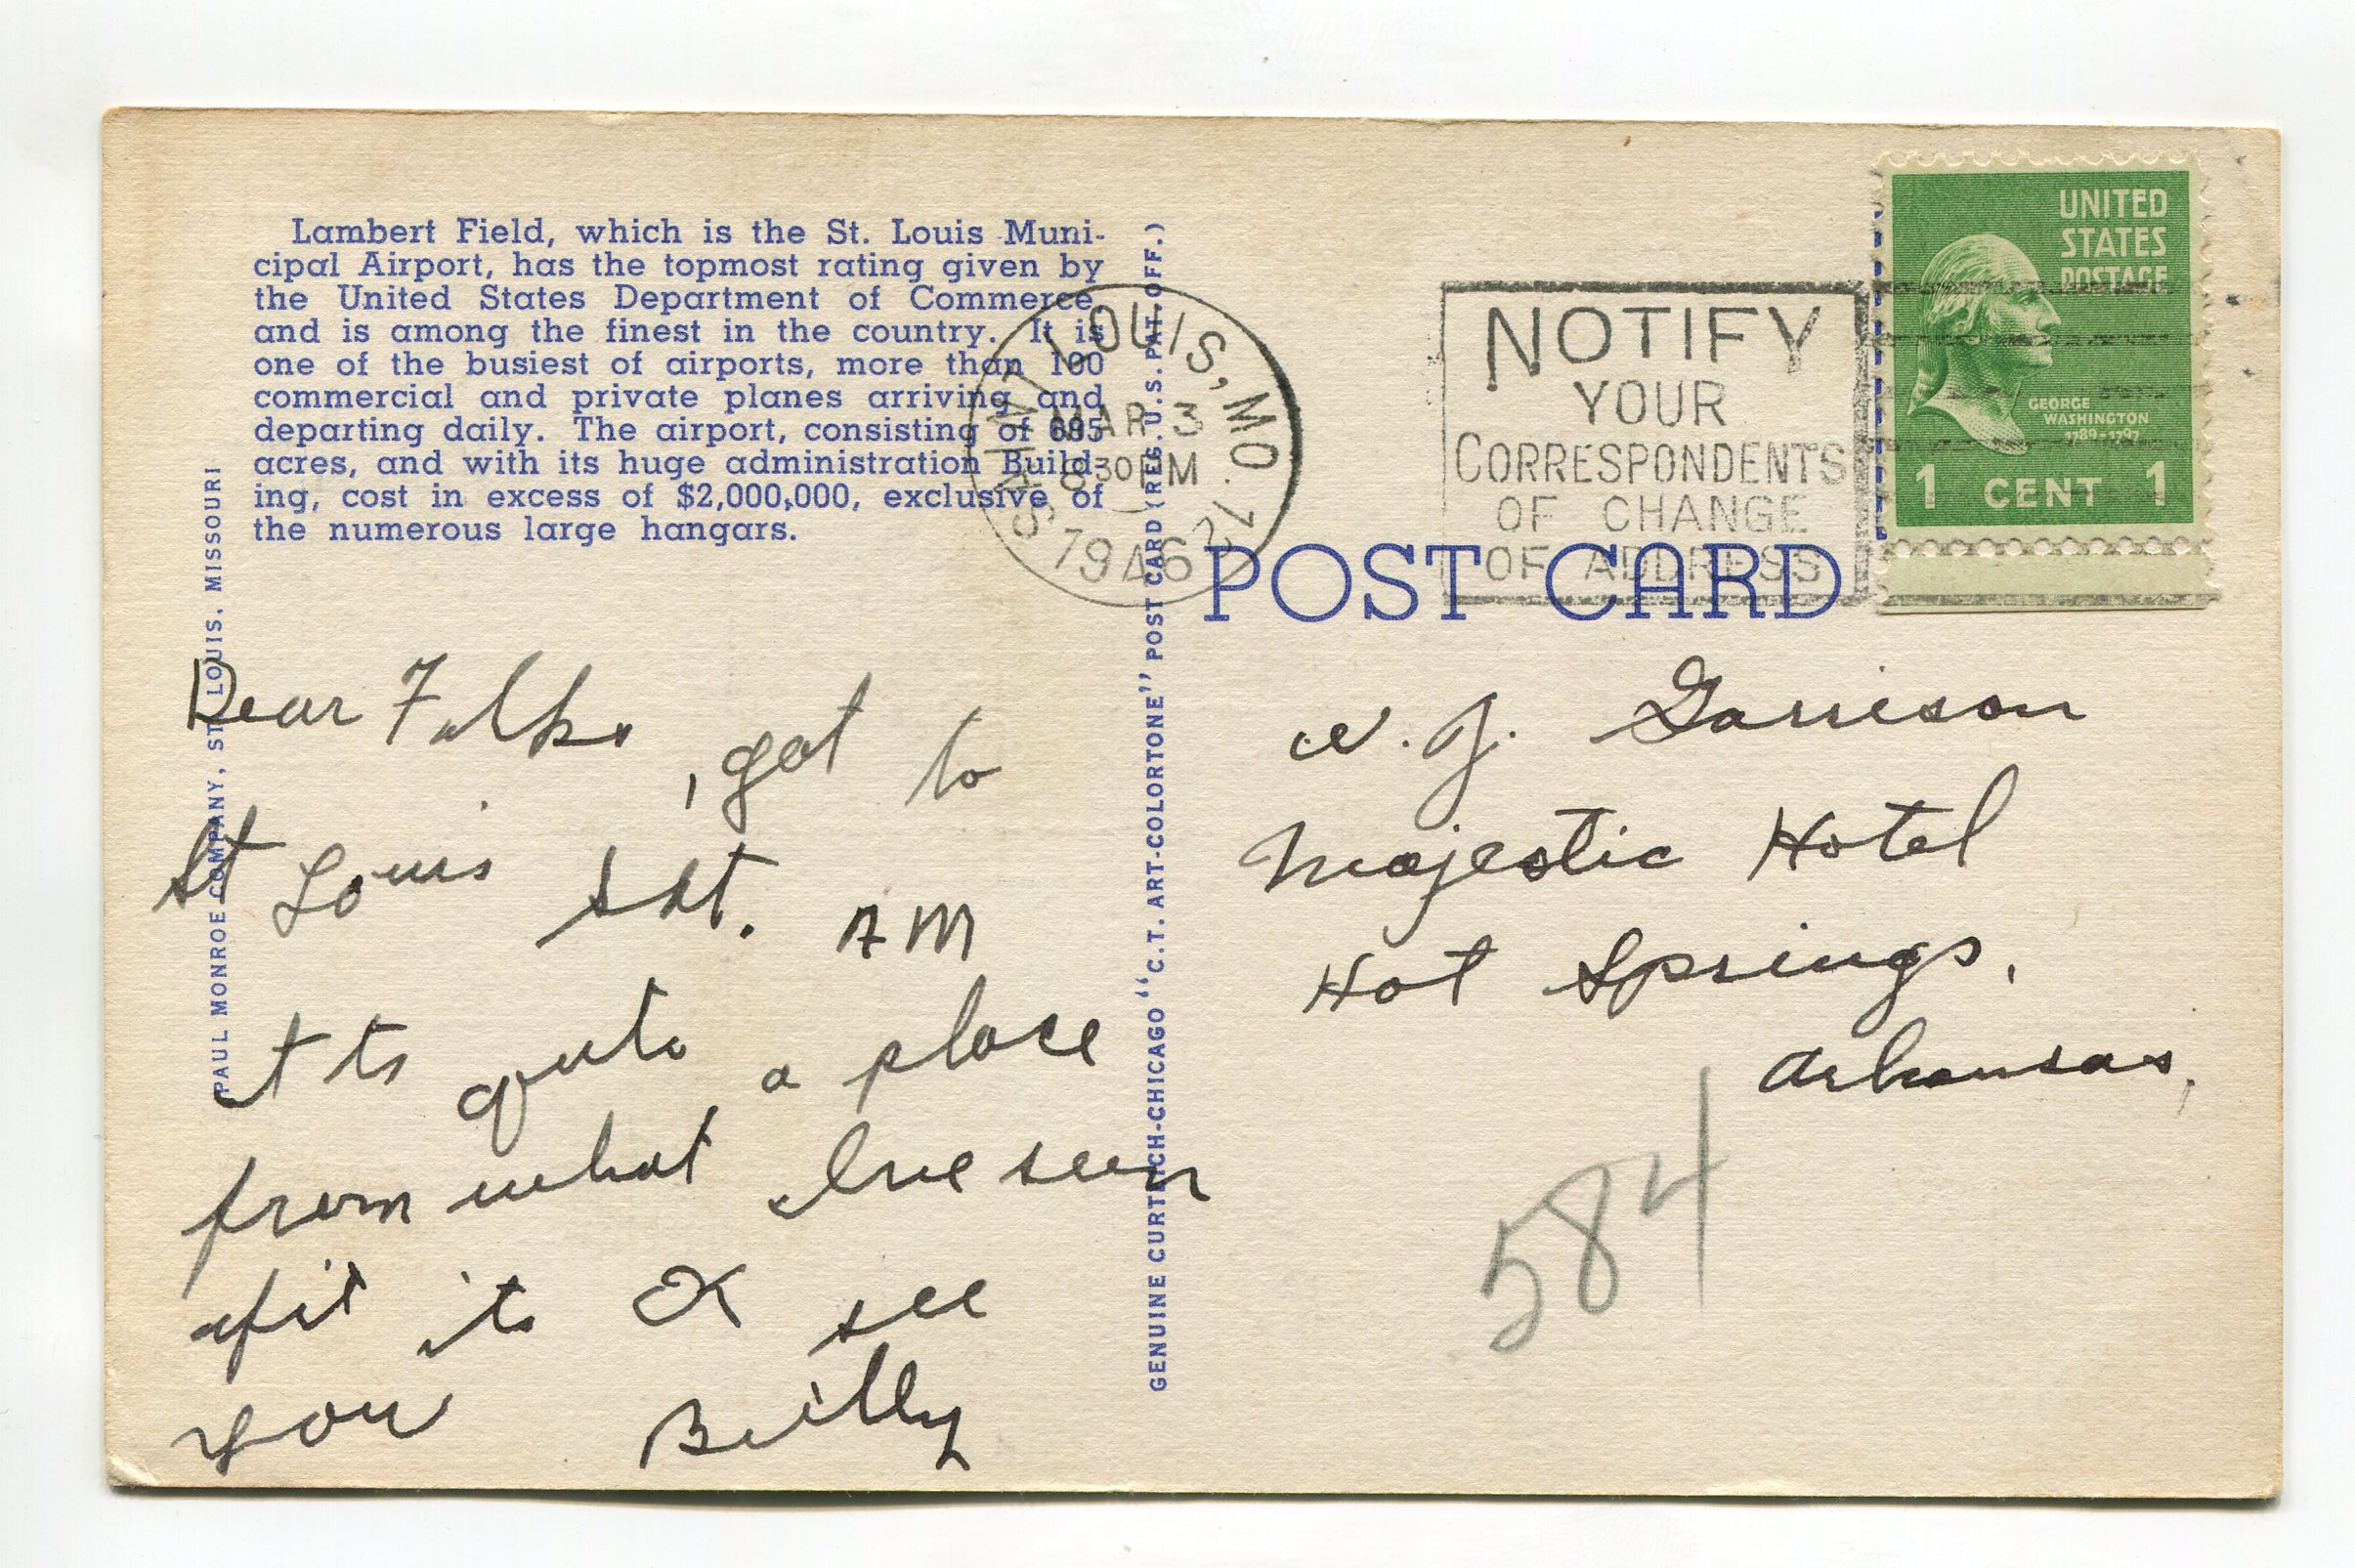 Lambert Field, which is the St. Louis Muni-
cipal Airport, has the topmost rating given by
the United States Department of Commerce
and is among the finest in the country. It is
one of the busiest of airports, more than 100
commercial and private planes arriving and
departing daily. The airport, consisting of 695
acres, and with its huge administration Build-
ing, cost in excess of $2,000,000, exclusive of
the numerous large hangars.
PAUL MONROE COMPANY, ST. LOUIS, MISSOURI
Dear Folks, got to
St Louis Sat. AM
quite a place
from what I've seen
of it its OK see
you Billy
GENUINE CURTEICH-CHICAGO "C.T. ART-COLORTONE" POST CARD (REG. U.S. PAT. OFF.)
SAINT LOUIS, MO. 2
MAR 3
8 30 PM
1946
NOTIFY
YOUR
CORRESPONDENTS
OF CHANGE
OF ADDRESS
UNITED
STATES
POSTAGE
GEORGE
WASHINGTON
1789-1797
1 CENT 1
POST CARD
W. J. Garrison
Majestic Hotel
Hot Springs,
Arkansas,
584